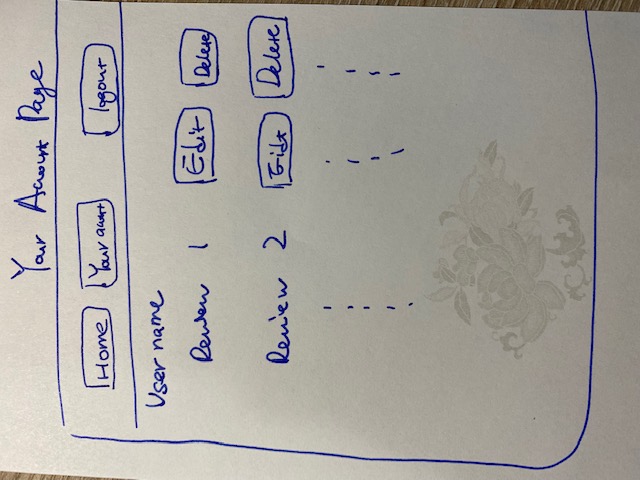 Your Account Page
Home Your account logout
User name
Review 1 Edit Delete
Review 2 Eidt Delete